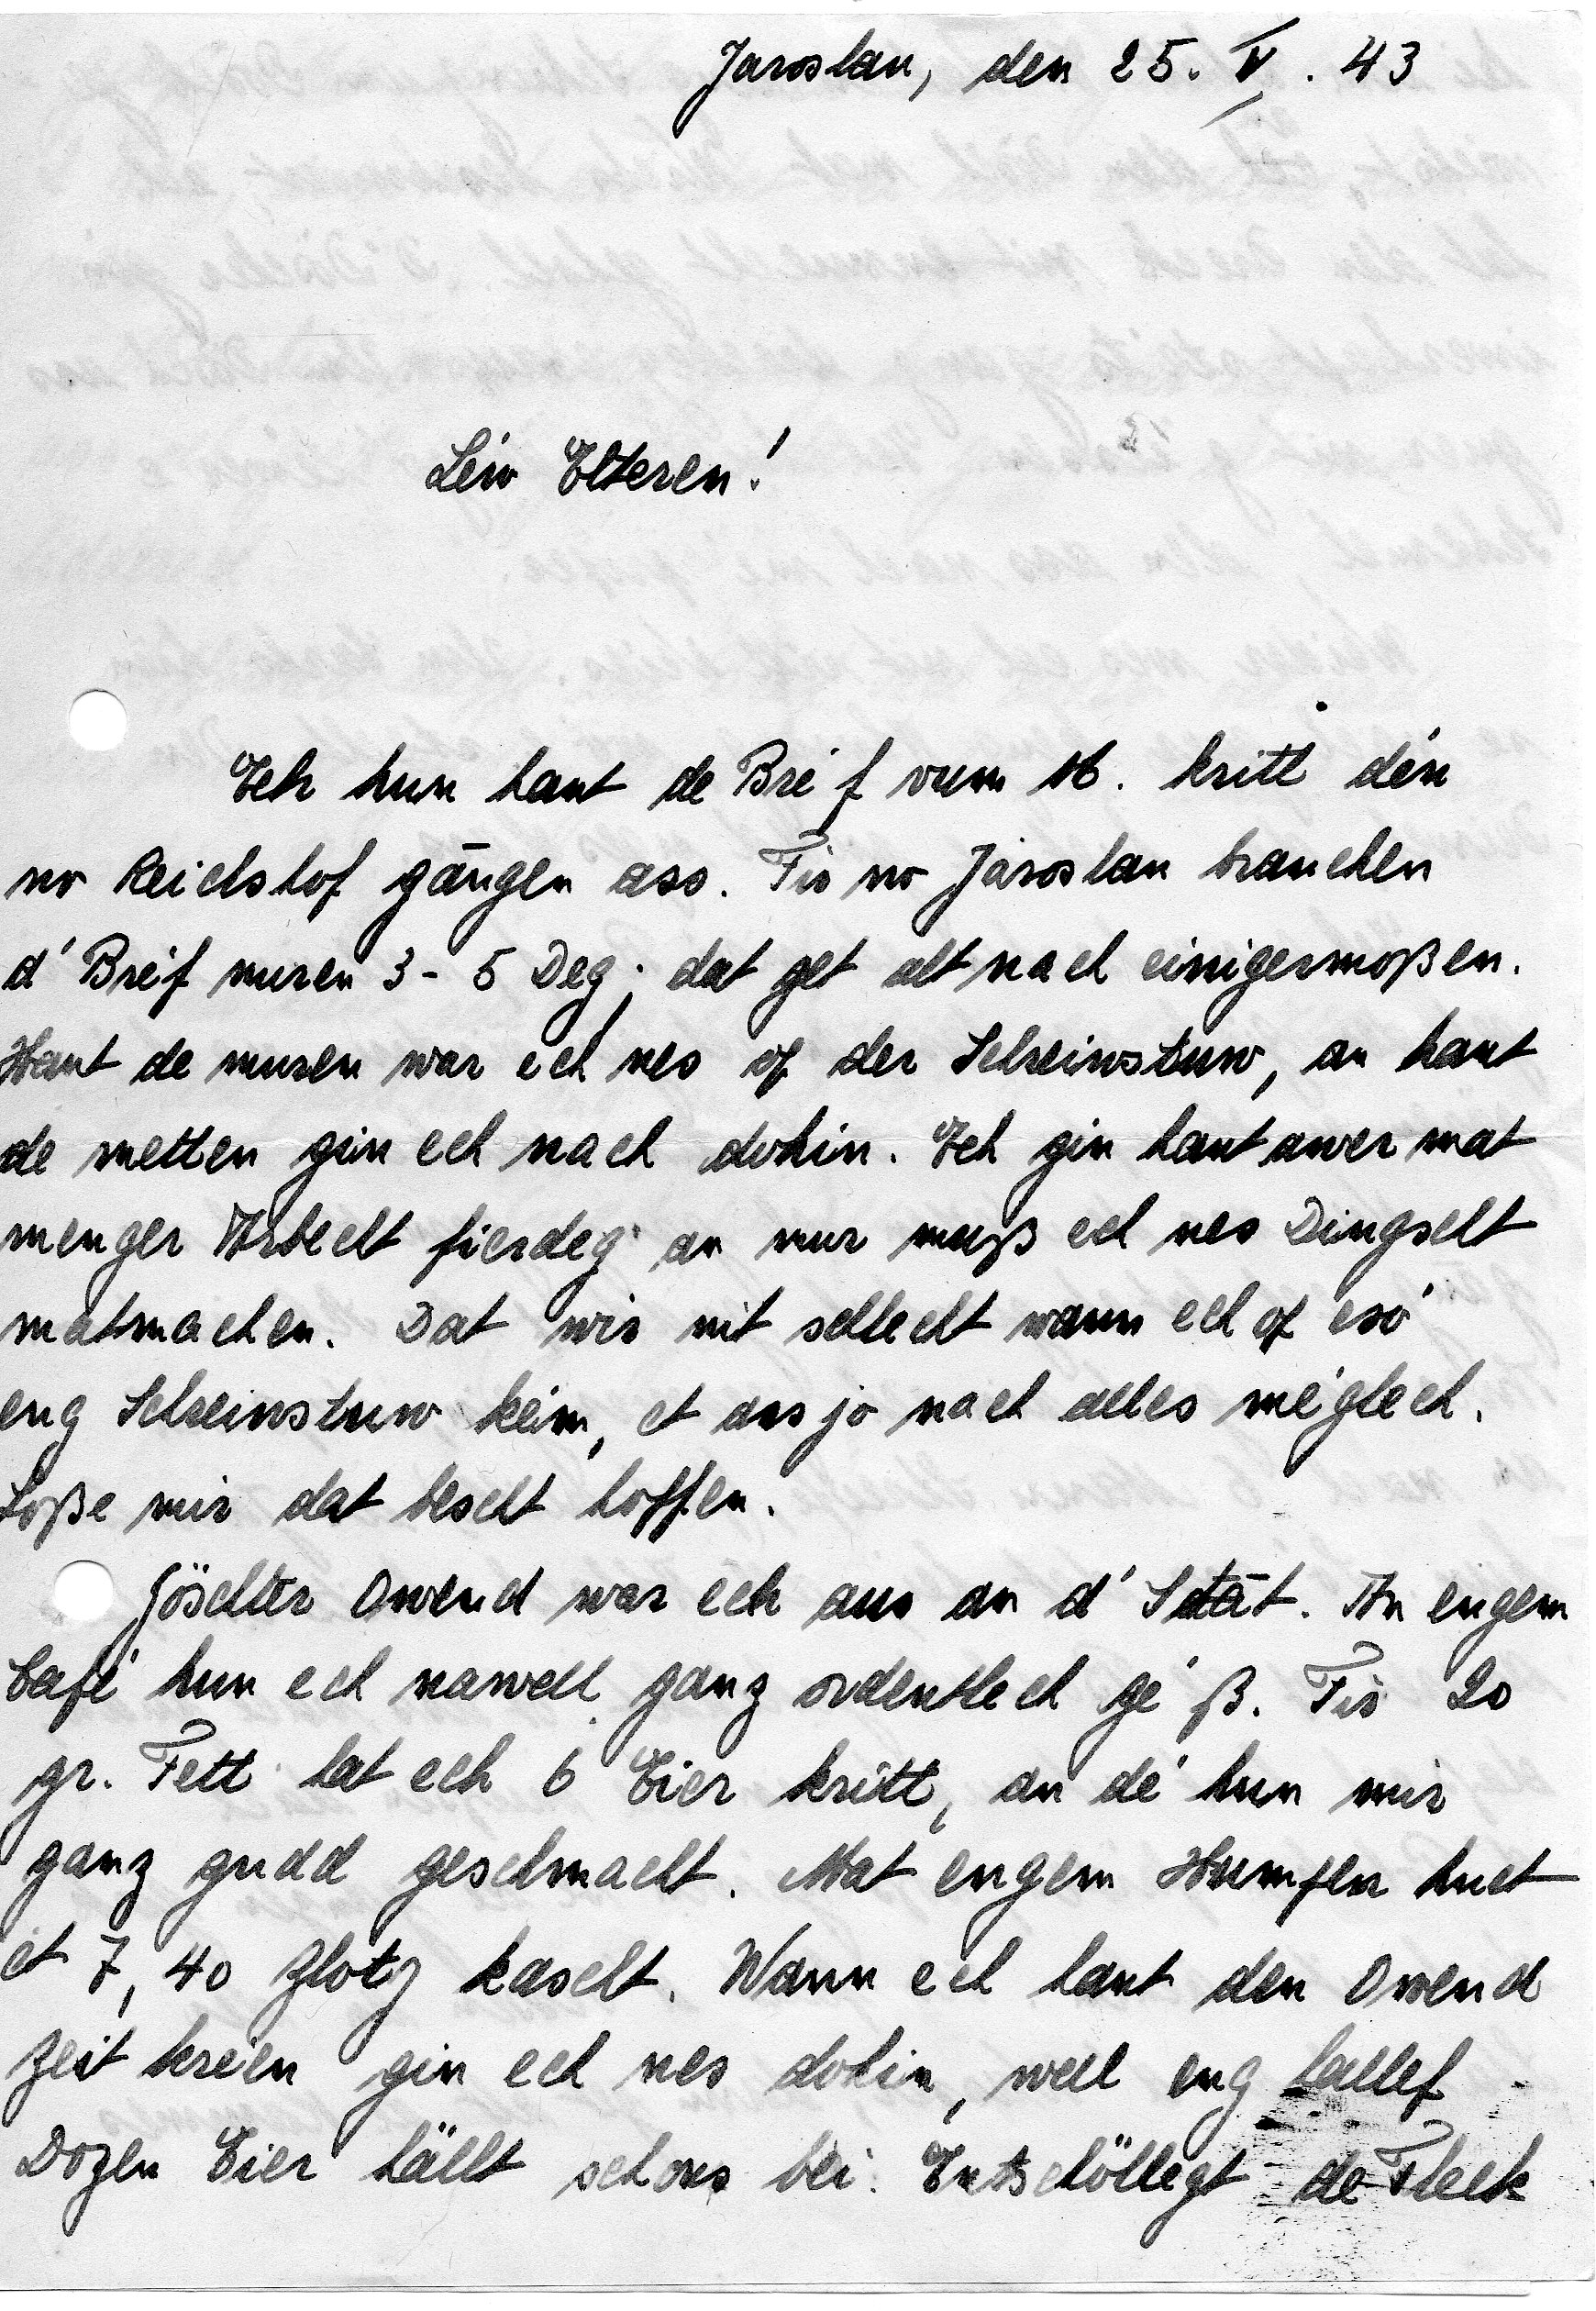 Jaroslau, den 25. V. 43
Léiw Elteren!
Ech hun haut de Bréif vum 16. kritt dén
no Reichshof gāngen ass. Fir no Jaroslau brauchen
d' Bréif nuren 3-5 Deg; dat get alt nach einigermoßen.
Haut de muren war ech nes of der Schreinstuw, an haut
de metten gin ech nach dohin. Ech gin haut awer mat
menger Arbecht fierdeg an mur muß ech nes Dingscht
matmachen. Dat wir nit schlecht wann ech of esó
eng Schreinstuw kéim, et ass jo nach alles méglech.
Loße mir dat bescht hoffen.
Göschter Owend war ech aus an d' Stāt. An engem
Café hun ech nawell ganz ordentlech gé ß. Fir 20
gr. Fett hat ech 6 Eier kritt, an dé hun mir
ganz gudd geschmacht. Mat engem Humpen huet
et 7,40 Zloty kascht. Wann ech haut den Owend
Zeit kréien gin ech nes dohin, well eng hallef
Dozen Eier hällt schons bei. Entschöllegt de Fleck